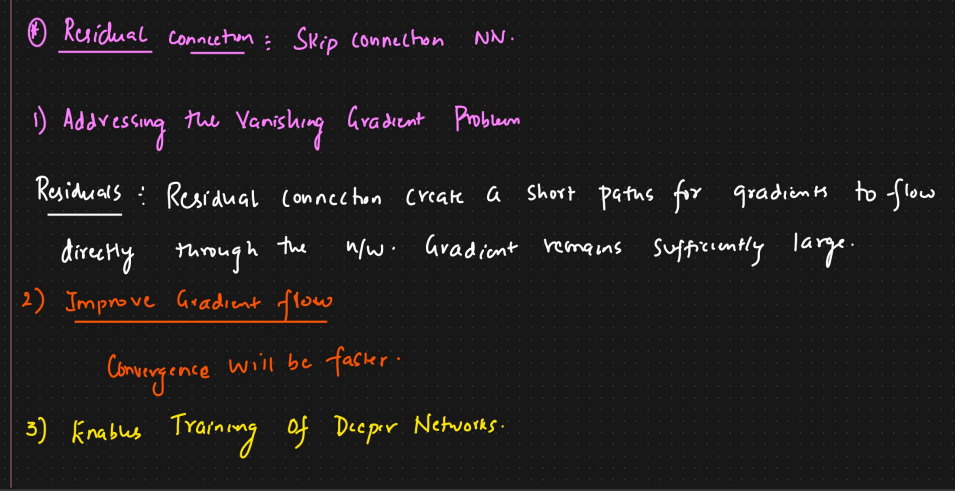 * Residual connection : Skip connection NN.
1) Addressing the Vanishing Gradient Problem
Residuals : Residual connection create a short paths for gradients to flow
directly through the n/w. Gradient remains sufficiently large.
2) Improve Gradient flow
Convergence will be faster.
3) Enables Training of Deeper Networks.